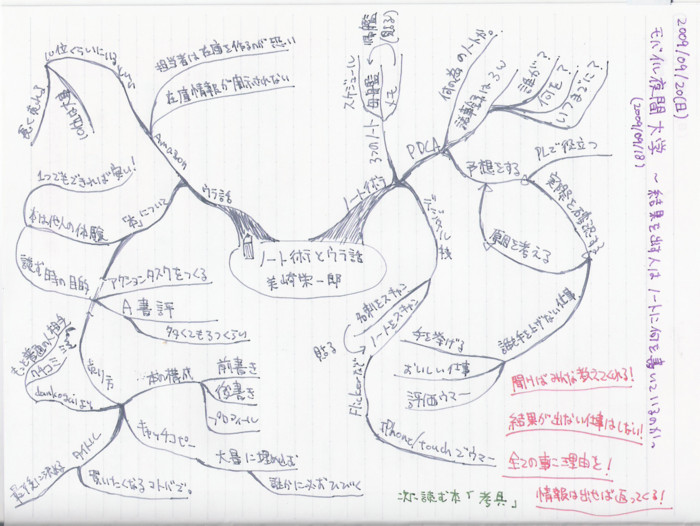 2009/04/20(日)
モバイル夜間大学 ～結果を出す人はノートに何を書いているのか。
(2009/04/18)
ノート術とウラ話
美崎栄一郎
ノート術
3つのノート
スケジュール
母艦
メモ
PDCA
何の為の人か。
議事録は3人
誰が?
何を?
いつまでに?
予想をする
PLで役立つ
実際を確認する
原因を考える
誰も手を上げない仕事
手を挙げる
おいしい仕事
評価ウマー
デジタル技
名刺をスキャン
ノートをスキャン
貼る
Flickrなど
iPhone/touchでウマー
ウラ話
Amazon
担当者は在庫を作るのが悪い
在庫情報が開示されない
10位くらいに
長く売れる
「本」について
1つでもできれば安い!
本は他人の体験
読む時の目的
アクションタスクをつくる
A書評
タタくてもろくらい
売り方
もっと普通の人相手
クチコミ
dankogaiより
本の構成
前書き
後書き
プロフィール
キャッチコピー
大量に埋め込む
誰かに必ずひびく
タイトル
最後に決める
買いたくなるコトバで。
聞けばみんな教えてくれる!
結果が出ない仕事はしない!
全ての事に理由を!
情報は出せば返ってくる!
次に読む本「考具」